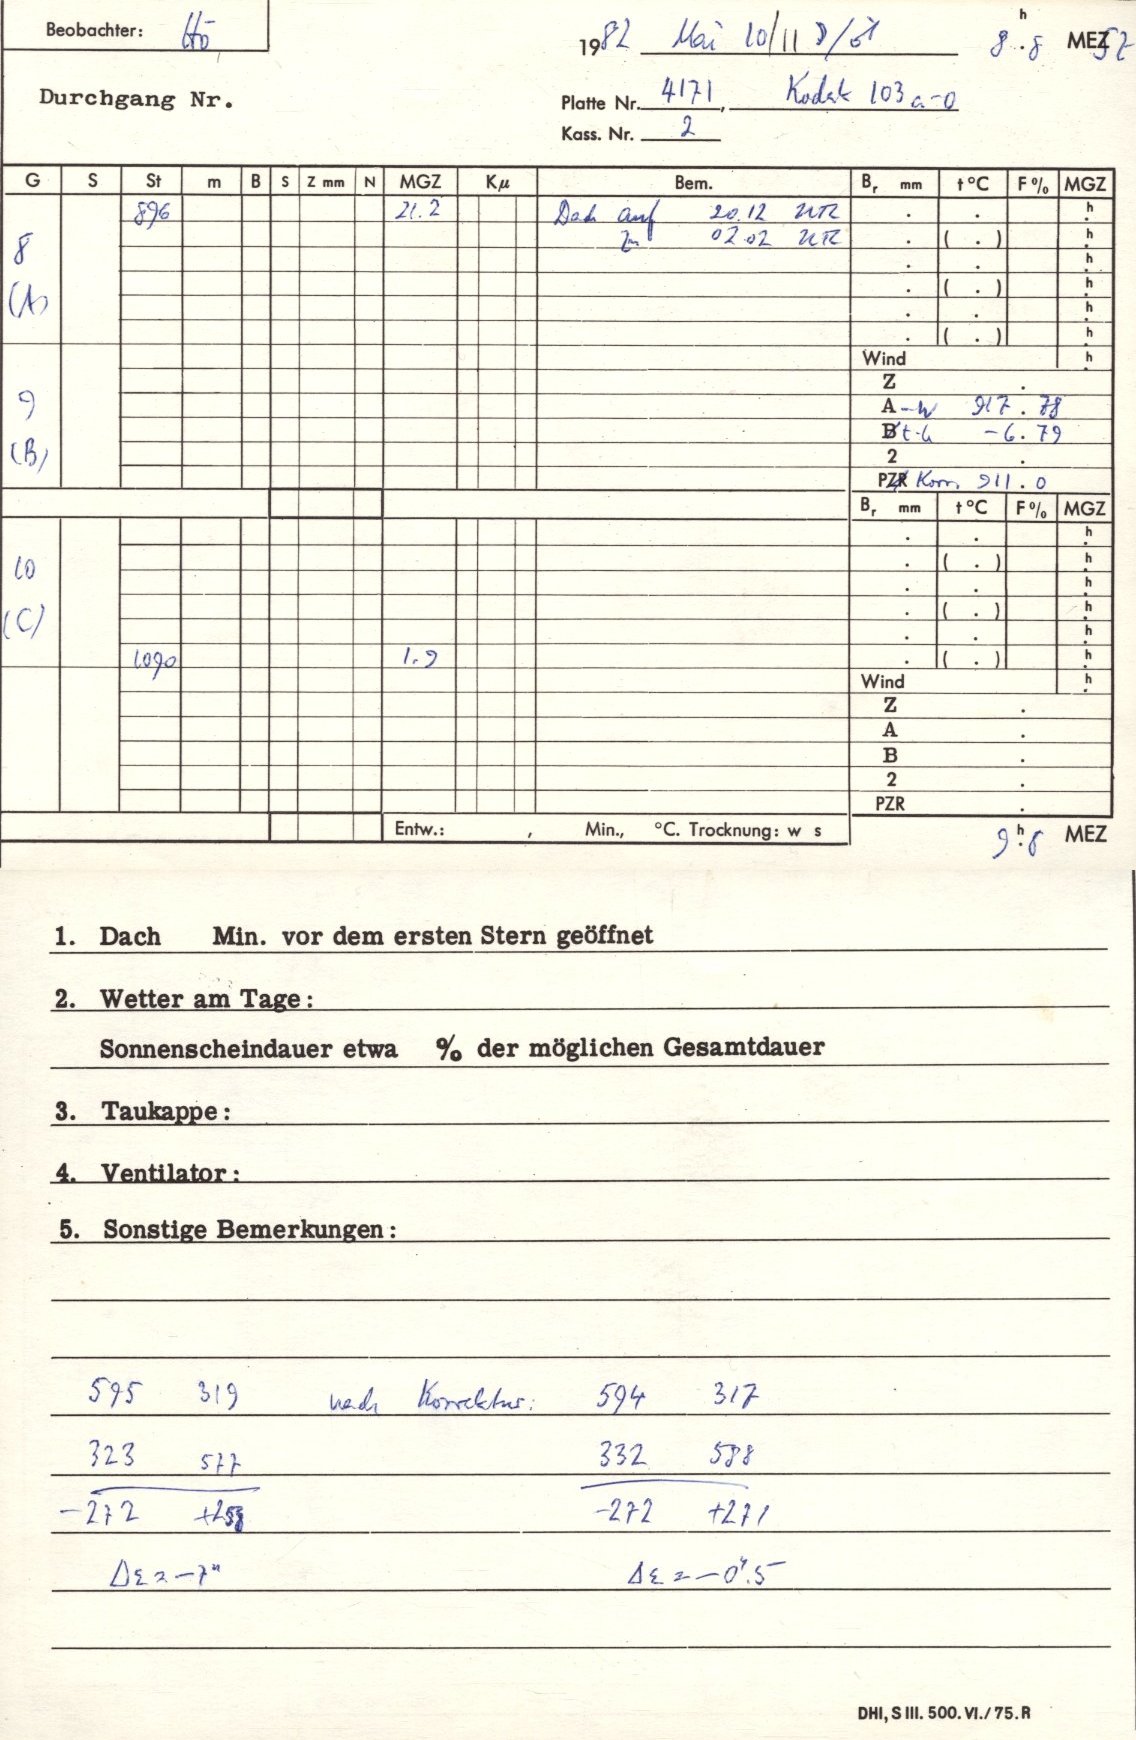 Beobachter: Hö
1982 Mai 10/11 8 h 8 MEZ
Durchgang Nr.
Platte Nr. 4171, Kodak 103 a-0
Kass. Nr. 2
G S St m B S Z mm N MGZ Kμ Bem. Br mm t °C F % MGZ
896 21.2 Dach auf 20.12 . . h
8 zu 02.02 . ( . ) h
. . h
(A) . ( . ) h
. . h
. ( . ) h
Wind h
Z .
9 A-W 917.78
B t-h -6.79
(B) 2 .
PZR Korr. 911.0
Br mm t °C F % MGZ
. . h
10 . ( . ) h
. . h
(C) . ( . ) h
. . h
1090 1.9 . ( . ) h
Wind h
Z .
A .
B .
2 .
PZR .
Entw.: , Min., °C. Trocknung: w s
9 h 8 MEZ
1. Dach Min. vor dem ersten Stern geöffnet
2. Wetter am Tage:
Sonnenscheindauer etwa % der möglichen Gesamtdauer
3. Taukappe:
4. Ventilator:
5. Sonstige Bemerkungen:
595 319 nach Korrektur: 594 317
323 577 332 588
-272 +258 -272 +271
Δε = -7" Δε = -0".5
DHI, S III. 500. VI. / 75. R